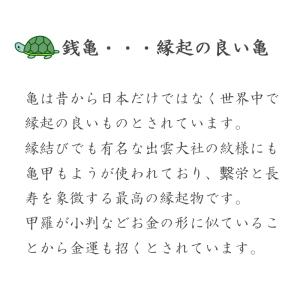 銭亀・・・縁起の良い亀
亀は昔から日本だけではなく世界中で
縁起の良いものとされています。
縁結びでも有名な出雲大社の紋様にも
亀甲もようが使われており、繫栄と長
寿を象徴する最高の縁起物です。
甲羅が小判などお金の形に似ているこ
とから金運も招くとされています。